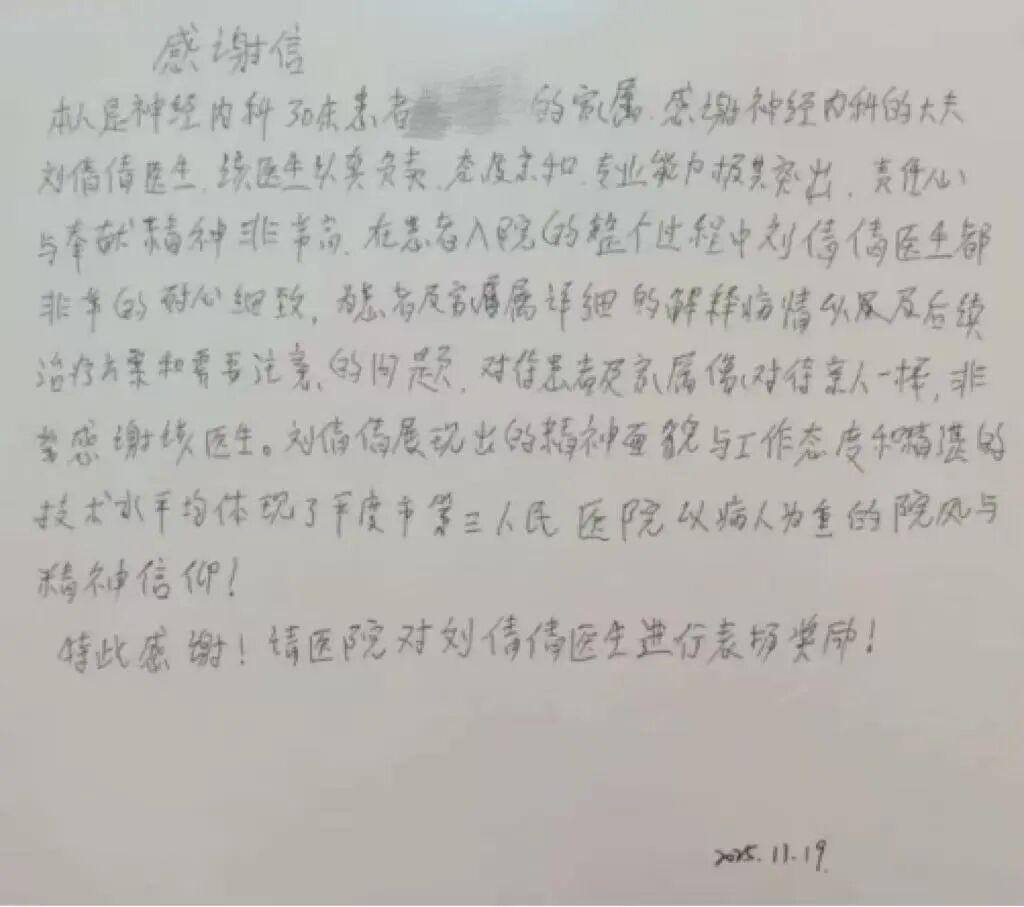 感谢信
本人是神经内科30床患者 的家属.感谢神经内科的大夫
刘倩倩医生.该医生认真负责.态度亲和.专业能力极其突出.责任心
与奉献精神非常高.在患者入院的整个过程中刘倩倩医生都
非常的耐心细致,为患者及家属属详细的解释病情以及及后续
治疗方案和需要注意的问题.对待患者及家属像对待亲人一样,非
常感谢该医生。刘倩倩展现出的精神面貌与工作态度和精湛的
技术水平均体现了平度市第三人民医院以病人为重的院风与
精神信仰!
特此感谢!请医院对刘倩倩医生进行表扬奖励!
2025.11.19.